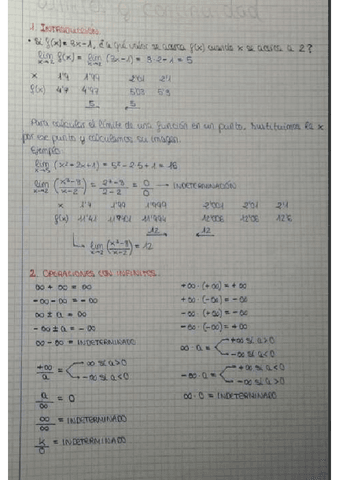 1. INTRODUCCIÓN
• Si f(x) = 3x - 1, ¿a qué valor se acerca f(x) cuando x se acerca a 2?
lim x→2 f(x) = lim x→2 (3x - 1) = 3·2 - 1 = 5
x 1'9 1'99 2'01 2'1
f(x) 4'7 4'97 5'03 5'3
5 5
Para calcular el límite de una función en un punto, sustituimos la x
por ese punto y calculamos su imagen.
Ejemplo:
lim (x² - 2x + 1) = 5² - 2·5 + 1 = 16
lim x→2 (x³ - 8 / x - 2) = 2³ - 8 / 2 - 2 = 0 / 0 → INDETERMINACIÓN
x 1'9 1'99 1'999 2'001 2'01 2'1
f(x) 11'41 11'9401 11'994 12'006 12'06 12'6
12 12
lim x→2 (x³ - 8 / x - 2) = 12
2. OPERACIONES CON INFINITOS.
∞ + ∞ = ∞ +∞ · (+∞) = +∞
-∞ - ∞ = -∞ +∞ · (-∞) = -∞
∞ ± a = ∞ -∞ · (+∞) = -∞
-∞ ± a = -∞ -∞ · (-∞) = +∞
∞ - ∞ = INDETERMINADO ∞ · a = +∞ si a>0
-∞ si a<0
+∞ / a = ∞ si a>0 -∞ · a = +∞ si a<0
-∞ si a<0 -∞ si a>0
a / ∞ = 0 ∞ · 0 = INDETERMINADO
∞ / ∞ = INDETERMINADO
k / 0 = INDETERMINADO